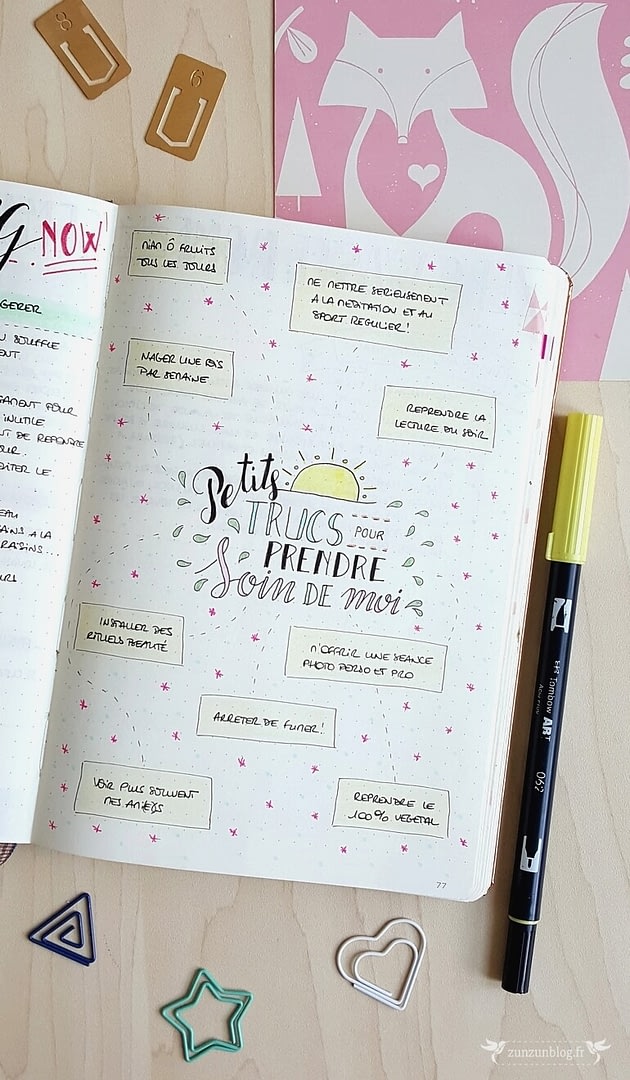 8
6
G NOW!
GERER
U SOUFFLE
ENT
GAMENT POUR
INUTILE
NT DE REPONDRE
OUR.
DITER LE
EAU
AINS A LA
RAISINS...
URS
MIAM Ô FRUITS
TOUS LES JOURS
ME METTRE SERIEUSEMENT
A LA MEDITATION ET AU
SPORT REGULIER!
NAGER UNE FOIS
PAR SEMAINE
REPRENDRE LA
LECTURE DU SOIR
Petits
TRUCS POUR
PRENDRE
Soin DE moi
INSTALLER DES
RITUELS BEAUTÉ
M'OFFRIR UNE SEANCE
PHOTO PERSO ET PRO
ARRETER DE FUMER!
VOIR PLUS SOUVENT
MES AMI(E)S
REPRENDRE LE
100% VEGETAL
77
Tombow
ABT
062
zunzunblog.fr